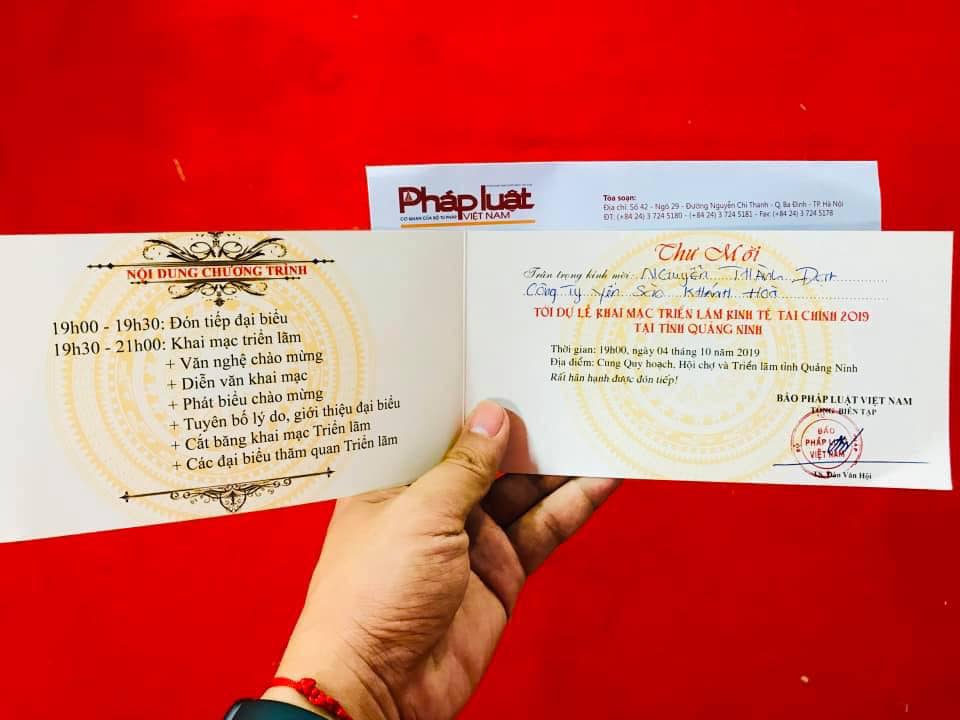 Pháp luật
VIỆT NAM
CƠ QUAN CỦA BỘ TƯ PHÁP
Tòa soạn:
Địa chỉ: Số 42 - Ngõ 29 - Đường Nguyễn Chí Thanh - Q. Ba Đình - TP. Hà Nội
ĐT: (+84 24) 3 724 5180 - (+84 24) 3 724 5181 - Fax: (+84 24) 3 724 5178
NỘI DUNG CHƯƠNG TRÌNH
19h00 - 19h30: Đón tiếp đại biểu
19h30 - 21h00: Khai mạc triển lãm
+ Văn nghệ chào mừng
+ Diễn văn khai mạc
+ Phát biểu chào mừng
+ Tuyên bố lý do, giới thiệu đại biểu
+ Cắt băng khai mạc Triển lãm
+ Các đại biểu thăm quan Triển lãm
Thư Mời
Trân trọng kính mời: Nguyễn Thành Đạt
Công ty Yến Sào Khánh Hoà
TỚI DỰ LỄ KHAI MẠC TRIỂN LÃM KINH TẾ TÀI CHÍNH 2019
TẠI TỈNH QUẢNG NINH
Thời gian: 19h00, ngày 04 tháng 10 năm 2019
Địa điểm: Cung Quy hoạch, Hội chợ và Triển lãm tỉnh Quảng Ninh
Rất hân hạnh được đón tiếp!
BÁO PHÁP LUẬT VIỆT NAM
TỔNG BIÊN TẬP
BÁO
PHÁP LUẬT
VIỆT NAM
TS. Đào Văn Hội